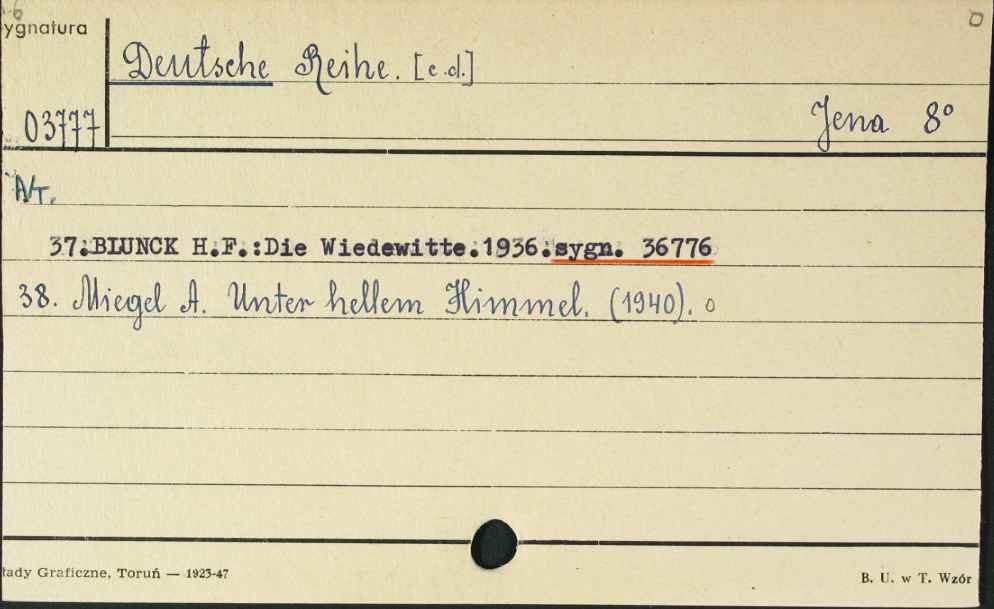 ygnatura
Deutsche Reihe. [c.d.]
03777
Jena 8°
A/T.
37.BLUNCK H.F.:Die Wiedewitte.1936.sygn. 36776
38. Miegel A. Unter hellem Himmel. (1940). o
łady Graficzne, Toruń — 1923-47
B. U. w T. Wzór